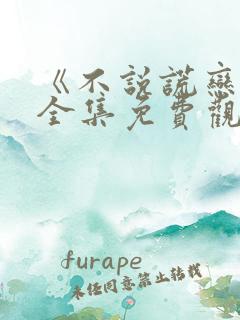 《不說謊戀
全集免費觀
furape
未经同意禁止转载